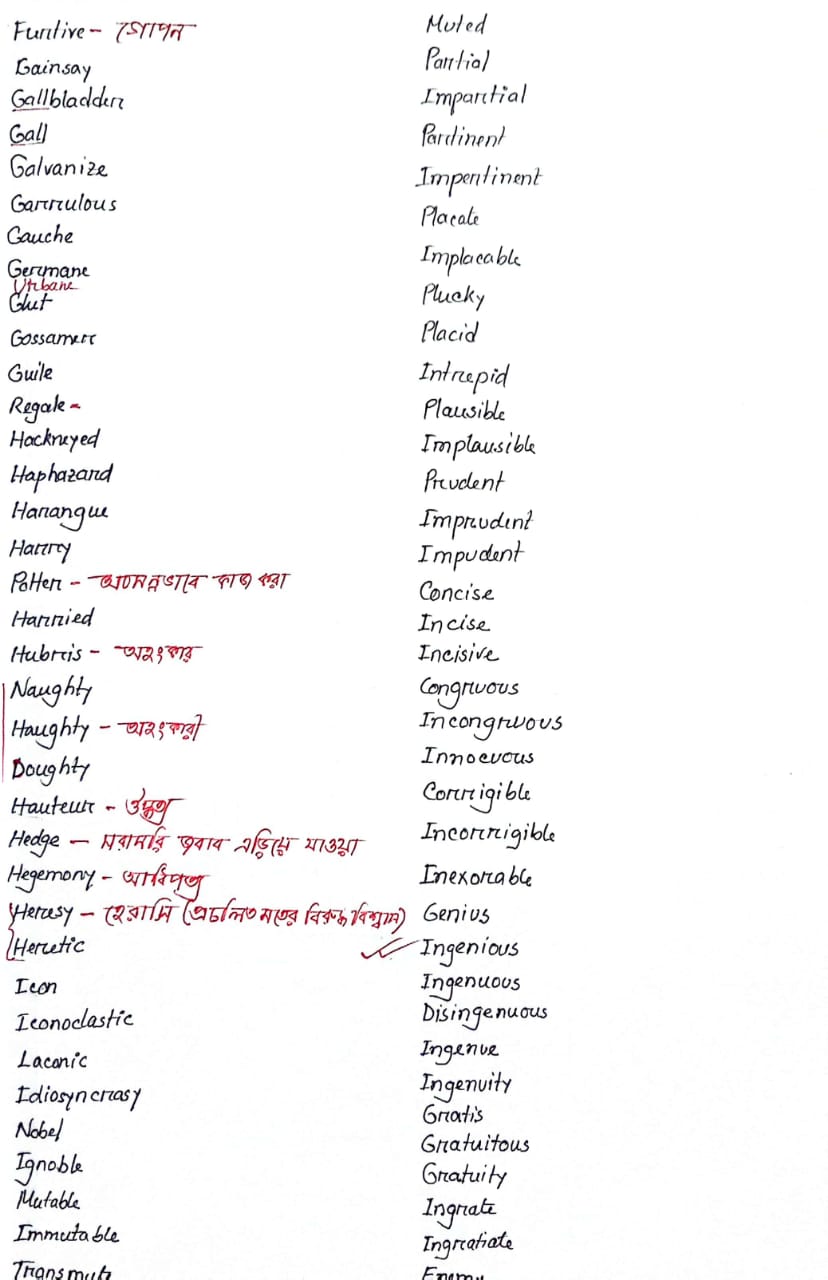 Furtive - গোপন
Gainsay
Gallbladder
Gall
Galvanize
Garrulous
Gauche
Germane
Urbane
Glut
Gossamer
Guile
Regale -
Hackneyed
Haphazard
Harangue
Harry
Potter - অযত্নভাবে কাজ করা
Harried
Hubris - অহংকার
Naughty
Haughty - অহংকারী
Doughty
Hauteur - ঔদ্ধত্য
Hedge - সরাসরি জবাব এড়িয়ে যাওয়া
Hegemony - আধিপত্য
Heresy - হেরাসি (প্রচলিত মতের বিরুদ্ধ বিশ্বাস)
Heretic
Icon
Iconoclastic
Laconic
Idiosyncrasy
Nobel
Ignoble
Mutable
Immutable
Transmute
Muted
Partial
Impartial
Partinent
Impertinent
Placate
Implacable
Plucky
Placid
Intrepid
Plausible
Implausible
Prudent
Imprudent
Impudent
Concise
Incise
Incisive
Congruous
Incongruous
Innocuous
Corrigible
Incorrigible
Inexorable
Genius
Ingenious
Ingenuous
Disingenuous
Ingenue
Ingenuity
Gratis
Gratuitous
Gratuity
Ingrate
Ingratiate
Enemy